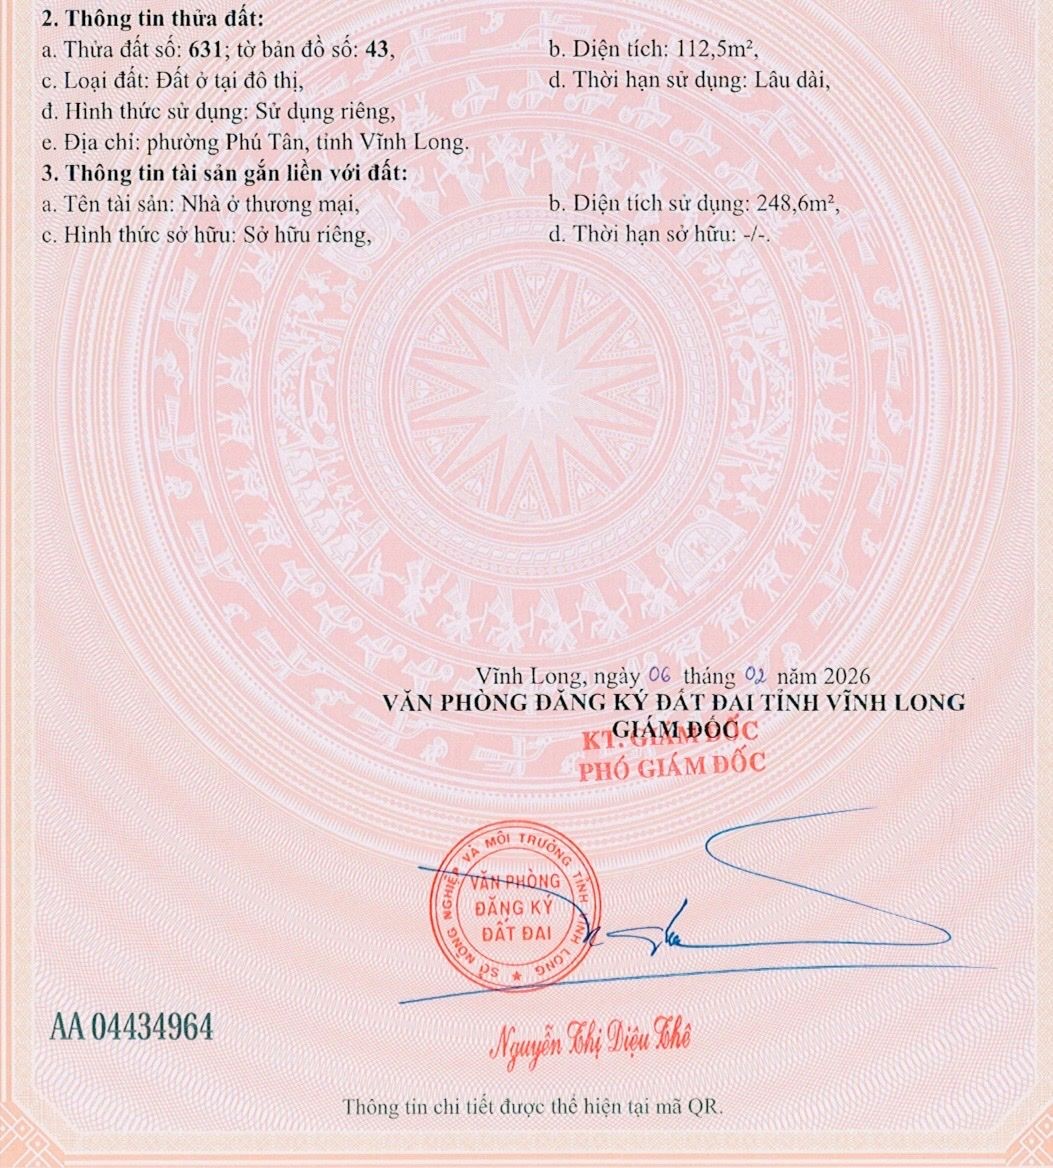 2. Thông tin thửa đất:
a. Thửa đất số: 631; tờ bản đồ số: 43,
b. Diện tích: 112,5m²,
c. Loại đất: Đất ở tại đô thị,
d. Thời hạn sử dụng: Lâu dài,
đ. Hình thức sử dụng: Sử dụng riêng,
e. Địa chỉ: phường Phú Tân, tỉnh Vĩnh Long.
3. Thông tin tài sản gắn liền với đất:
a. Tên tài sản: Nhà ở thương mại,
b. Diện tích sử dụng: 248,6m²,
c. Hình thức sở hữu: Sở hữu riêng,
d. Thời hạn sở hữu: -/-.
Vĩnh Long, ngày 06 tháng 02 năm 2026
VĂN PHÒNG ĐĂNG KÝ ĐẤT ĐAI TỈNH VĨNH LONG
GIÁM ĐỐC
KT. GIÁM ĐỐC
PHÓ GIÁM ĐỐC
SỞ NÔNG NGHIỆP VÀ MÔI TRƯỜNG TỈNH VĨNH LONG
VĂN PHÒNG
ĐĂNG KÝ
ĐẤT ĐAI
AA 04434964
Nguyễn Thị Diệu Thê
Thông tin chi tiết được thể hiện tại mã QR.